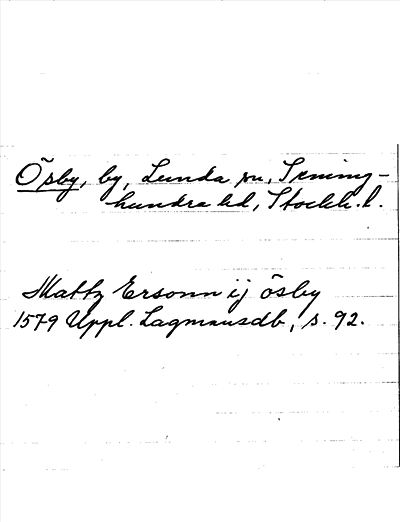 Ösby, by, Lunda sn, Seming-
hundra hd, Stockh. l.
Mattz Ersonn ij ösby
1579 Uppl. Lagmansdb, s. 92.